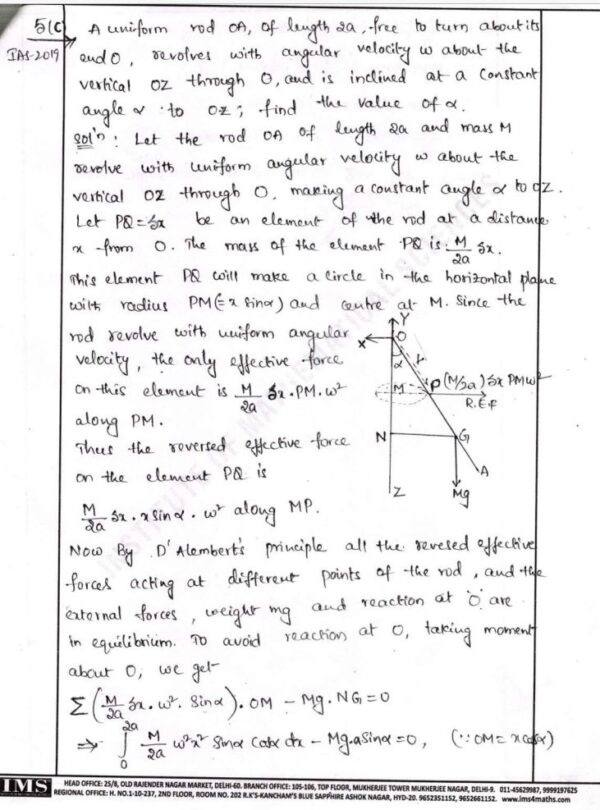 5(c) A uniform rod OA, of length 2a, free to turn about its
IAS-2019 end O, revolves with angular velocity ω about the
vertical OZ through O, and is inclined at a constant
angle α to OZ; find the value of α.
Sol'n: Let the rod OA of length 2a and mass M
revolve with uniform angular velocity ω about the
vertical OZ through O, making a constant angle α to OZ.
Let PQ = δx be an element of the rod at a distance
x from O. The mass of the element PQ is M/2a δx.
This element PQ will make a circle in the horizontal plane
with radius PM(= x sinα) and centre at M. Since the
rod revolve with uniform angular
velocity, the only effective force
on this element is M/2a δx. PM. ω²
along PM.
Thus the reversed effective force
on the element PQ is
M/2a δx. x sinα. ω² along MP.
Y
X O
α
M P (M/2a) δx PMω²
R.E.F
N G
A
Z Mg
Now By D'Alembert's principle all the revesed effective
forces acting at different points of the rod, and the
external forces, weight mg and reaction at 'O' are
in equilibrium. To avoid reaction at O, taking moment
about O, we get-
Σ (M/2a δx. ω². sinα). OM - Mg. NG = 0
⇒ ∫₀²ᵃ M/2a ω²x² sinα cosα dx - Mg.a sinα = 0, (∵ OM = x cosα)
INSTITUTE OF MATHEMATICAL SCIENCES
IMS
HEAD OFFICE: 25/8, OLD RAJENDER NAGAR MARKET, DELHI-60. BRANCH OFFICE: 105-106, TOP FLOOR, MUKHERJEE TOWER MUKHERJEE NAGAR, DELHI-9. 011-45629987, 9999197625
REGIONAL OFFICE: H. NO.1-10-237, 2ND FLOOR, ROOM NO. 202 R.K'S-KANCHAM'S BLUE SAPPHIRE ASHOK NAGAR, HYD-20. 9652351152, 9652661152. www.ims4maths.com